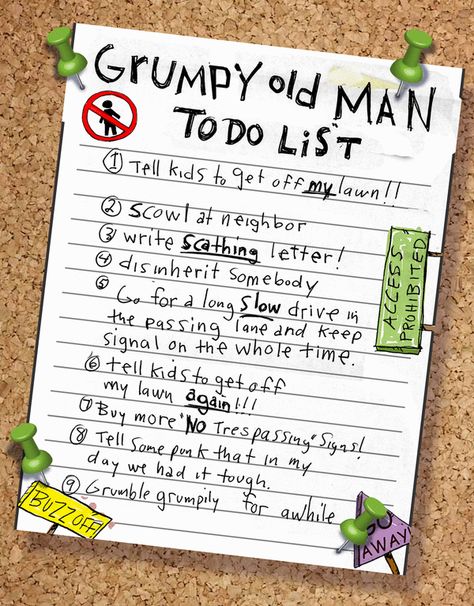 GRUMPY old MAN
TO DO LIST
① Tell kids to get off my lawn!!
② Scowl at neighbor
③ write Scathing letter!
④ disinherit somebody
⑤ Go for a long slow drive in
the passing lane and keep
signal on the whole time.
⑥ tell kids to get off
my lawn again!!!
⑦ Buy more "NO Trespassing" Signs!
⑧ Tell some punk that in my
day we had it tough.
⑨ Grumble grumpily for awhile
ACCESS
PROHIBITED
BUZZ OFF
GO
AWAY